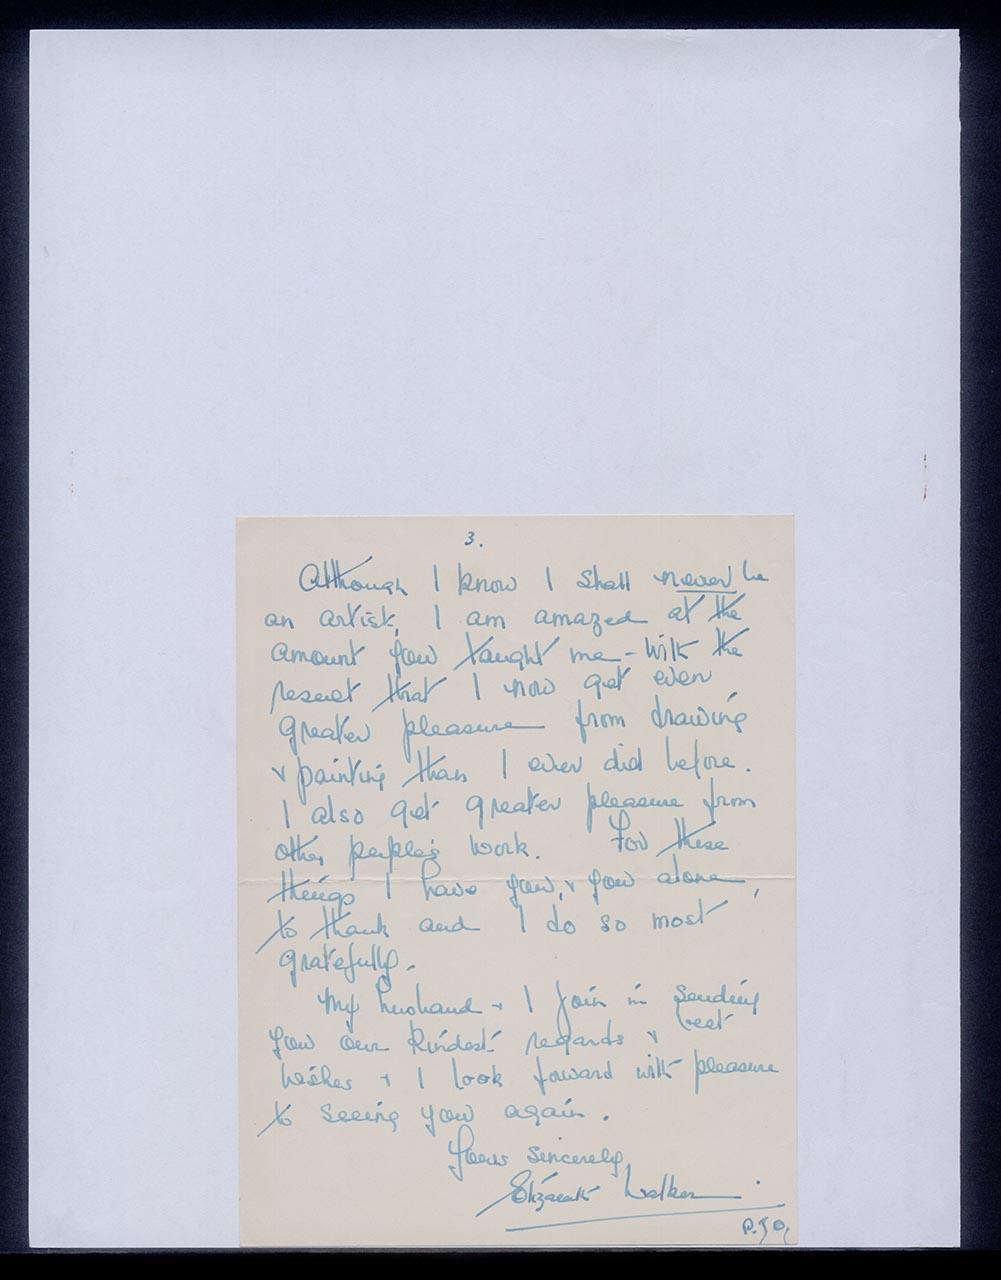 3.
Although I know I shall never be
an artist, I am amazed at the
amount you taught me - with the
result that I now get even
greater pleasure from drawing
& painting than I ever did before.
I also get greater pleasure from
other people's work. For these
things I have you, & you alone,
to thank and I do so most
gratefully.
My husband & I join in sending
you our kindest regards & best
wishes & I look forward with pleasure
to seeing you again.
Yours sincerely,
Elizabeth Walker.
P.T.O.